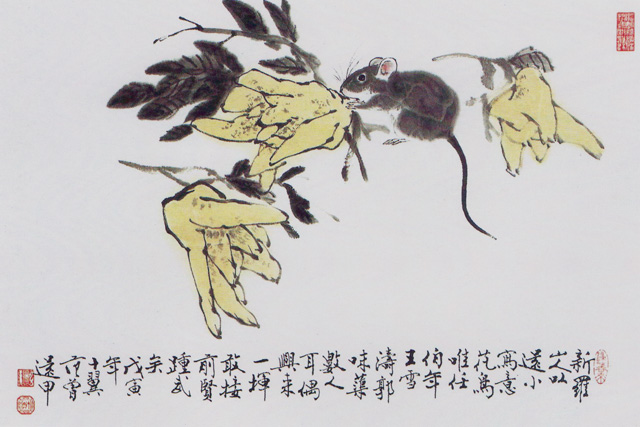 新羅
山人以
還小
寫意
花鳥
唯任
伯年
王雪
濤郭
味蕖
數人
耳偶
興來
一揮
敢接
前賢
踵武
矣
戊寅
年
十翼
范曾
還甲